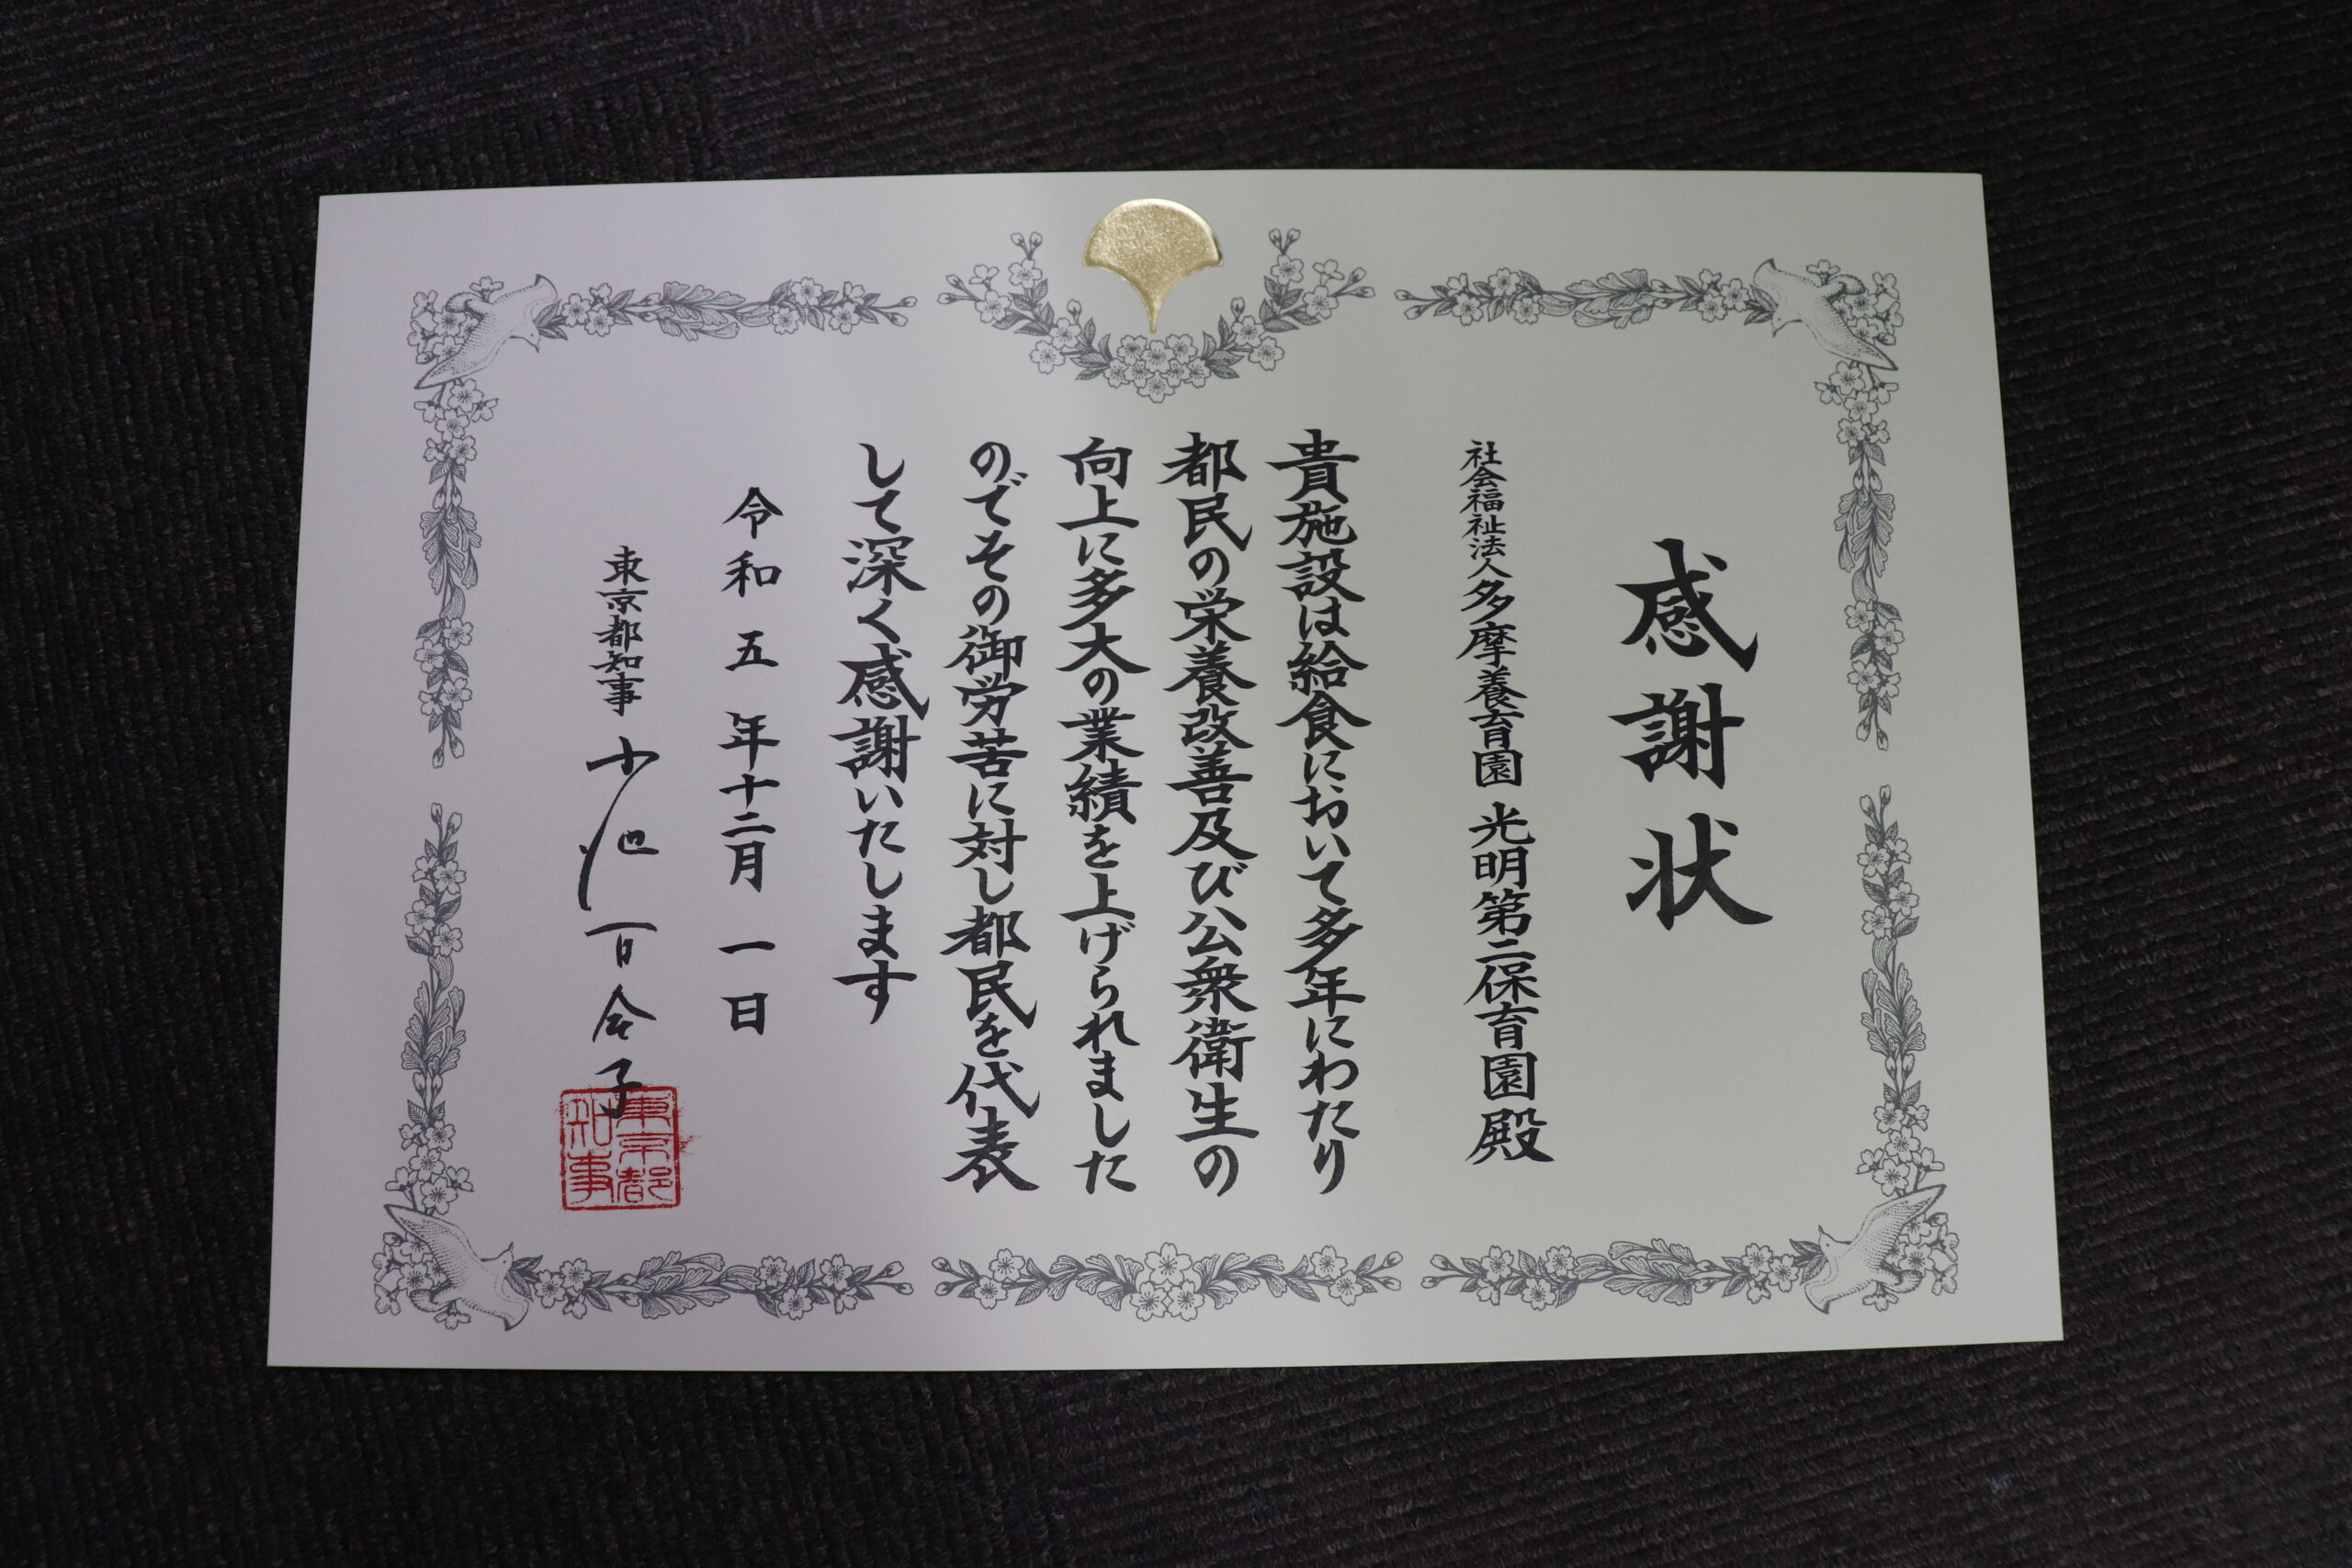 感謝状
社会福祉法人多摩養育園 光明第二保育園殿
貴施設は給食において多年にわたり
都民の栄養改善及び公衆衛生の
向上に多大の業績を上げられました
のでその御労苦に対し都民を代表
して深く感謝いたします
令和五年十二月一日
東京都知事 小池百合子
東京都
知事